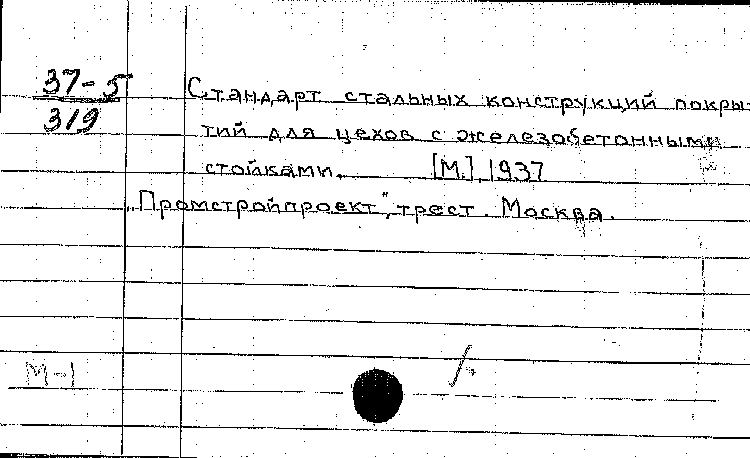 37-5
319
Стандарт стальных конструкций покры-
тий для цехов с железобетонными
стойками. [М.], 1937
„Промстройпроект", трест. Москва.
М-1